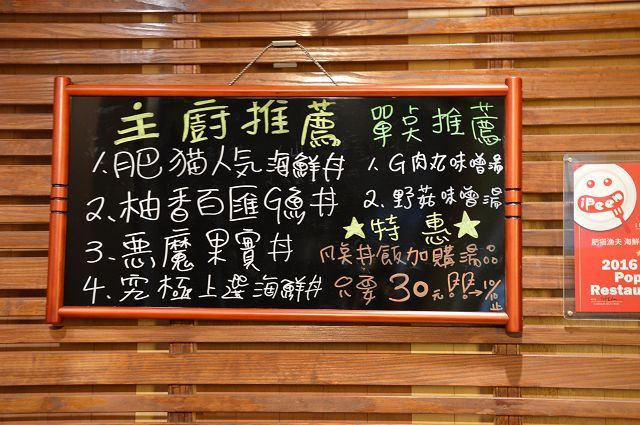 主廚推薦
1.肥猫人気海鮮丼
2.柚香百匯G魚丼
3.惡魔果實丼
4.究極上選海鮮丼
單点推薦
1.G肉丸味噌湯
2.野菇味噌湯
★特惠★
丼飯加購湯品
只要30元
iPeen
肥猫漁夫 海鮮
2016
Pop
Restau